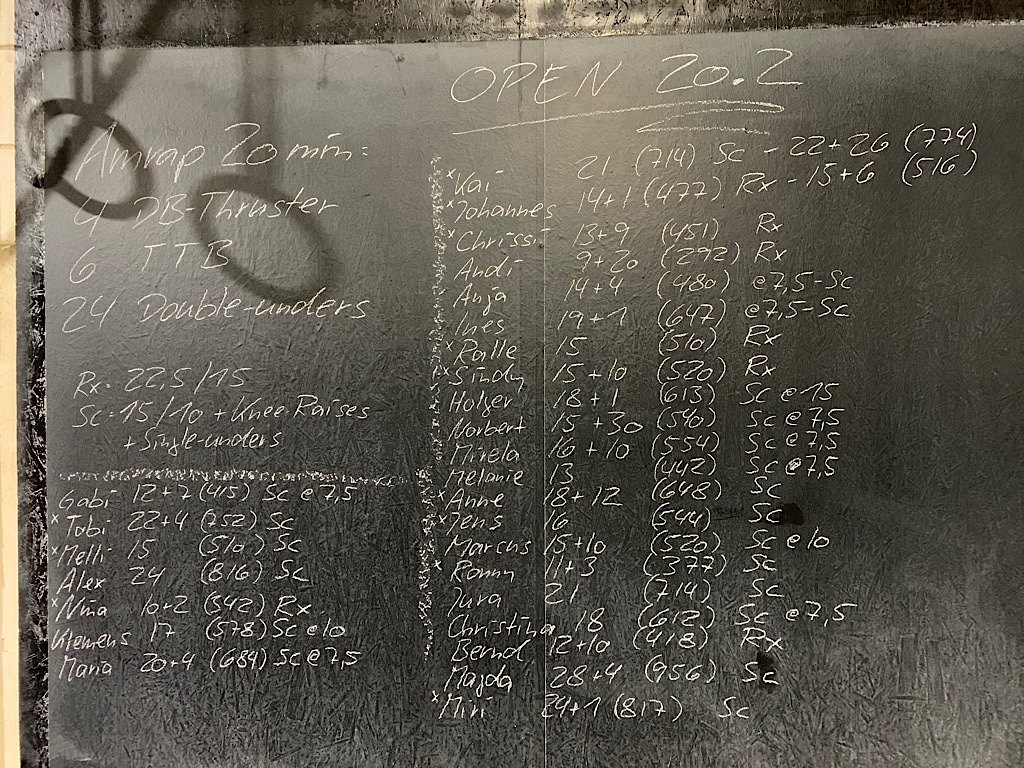 OPEN 20.2
Amrap 20 min:
4 DB-Thruster
6 TTB
24 Double-unders
Rx: 22,5/15
Sc: 15/10 + Knee Raises
+ Single-unders
Gabi 12+7 (415) Sc @ 7,5
*Tobi 22+4 (752) Sc
*Melli 15 (510) Sc
Alex 24 (816) Sc
*Nina 10+2 (342) Rx
Klemens 17 (578) Sc @ 10
Maria 20+4 (684) Sc @ 7,5
*Kai 21 (714) Sc - 22+26 (774)
*Johannes 14+1 (477) Rx - 15+6 (516)
*Chrissi 13+9 (451) Rx
Andi 9+20 (292) Rx
Anja 14+4 (480) @ 7,5-Sc
Ines 19+1 (647) @ 7,5-Sc
*Ralle 15 (510) Rx
*Sindy 15+10 (520) Rx
Holger 18+1 (613) Sc @ 15
Norbert 15+30 (540) Sc @ 7,5
Mirela 16+10 (554) Sc @ 7,5
Melanie 13 (442) Sc @ 7,5
*Anne 18+12 (648) Sc
*Jens 16 (544) Sc
Marcus 15+10 (520) Sc @ 10
*Ronny 11+3 (377) Sc
Jura 21 (714) Sc
Christina 18 (612) Sc @ 7,5
Bernd 12+10 (418) Rx
Majda 28+4 (956) Sc
*Miri 24+1 (817) Sc